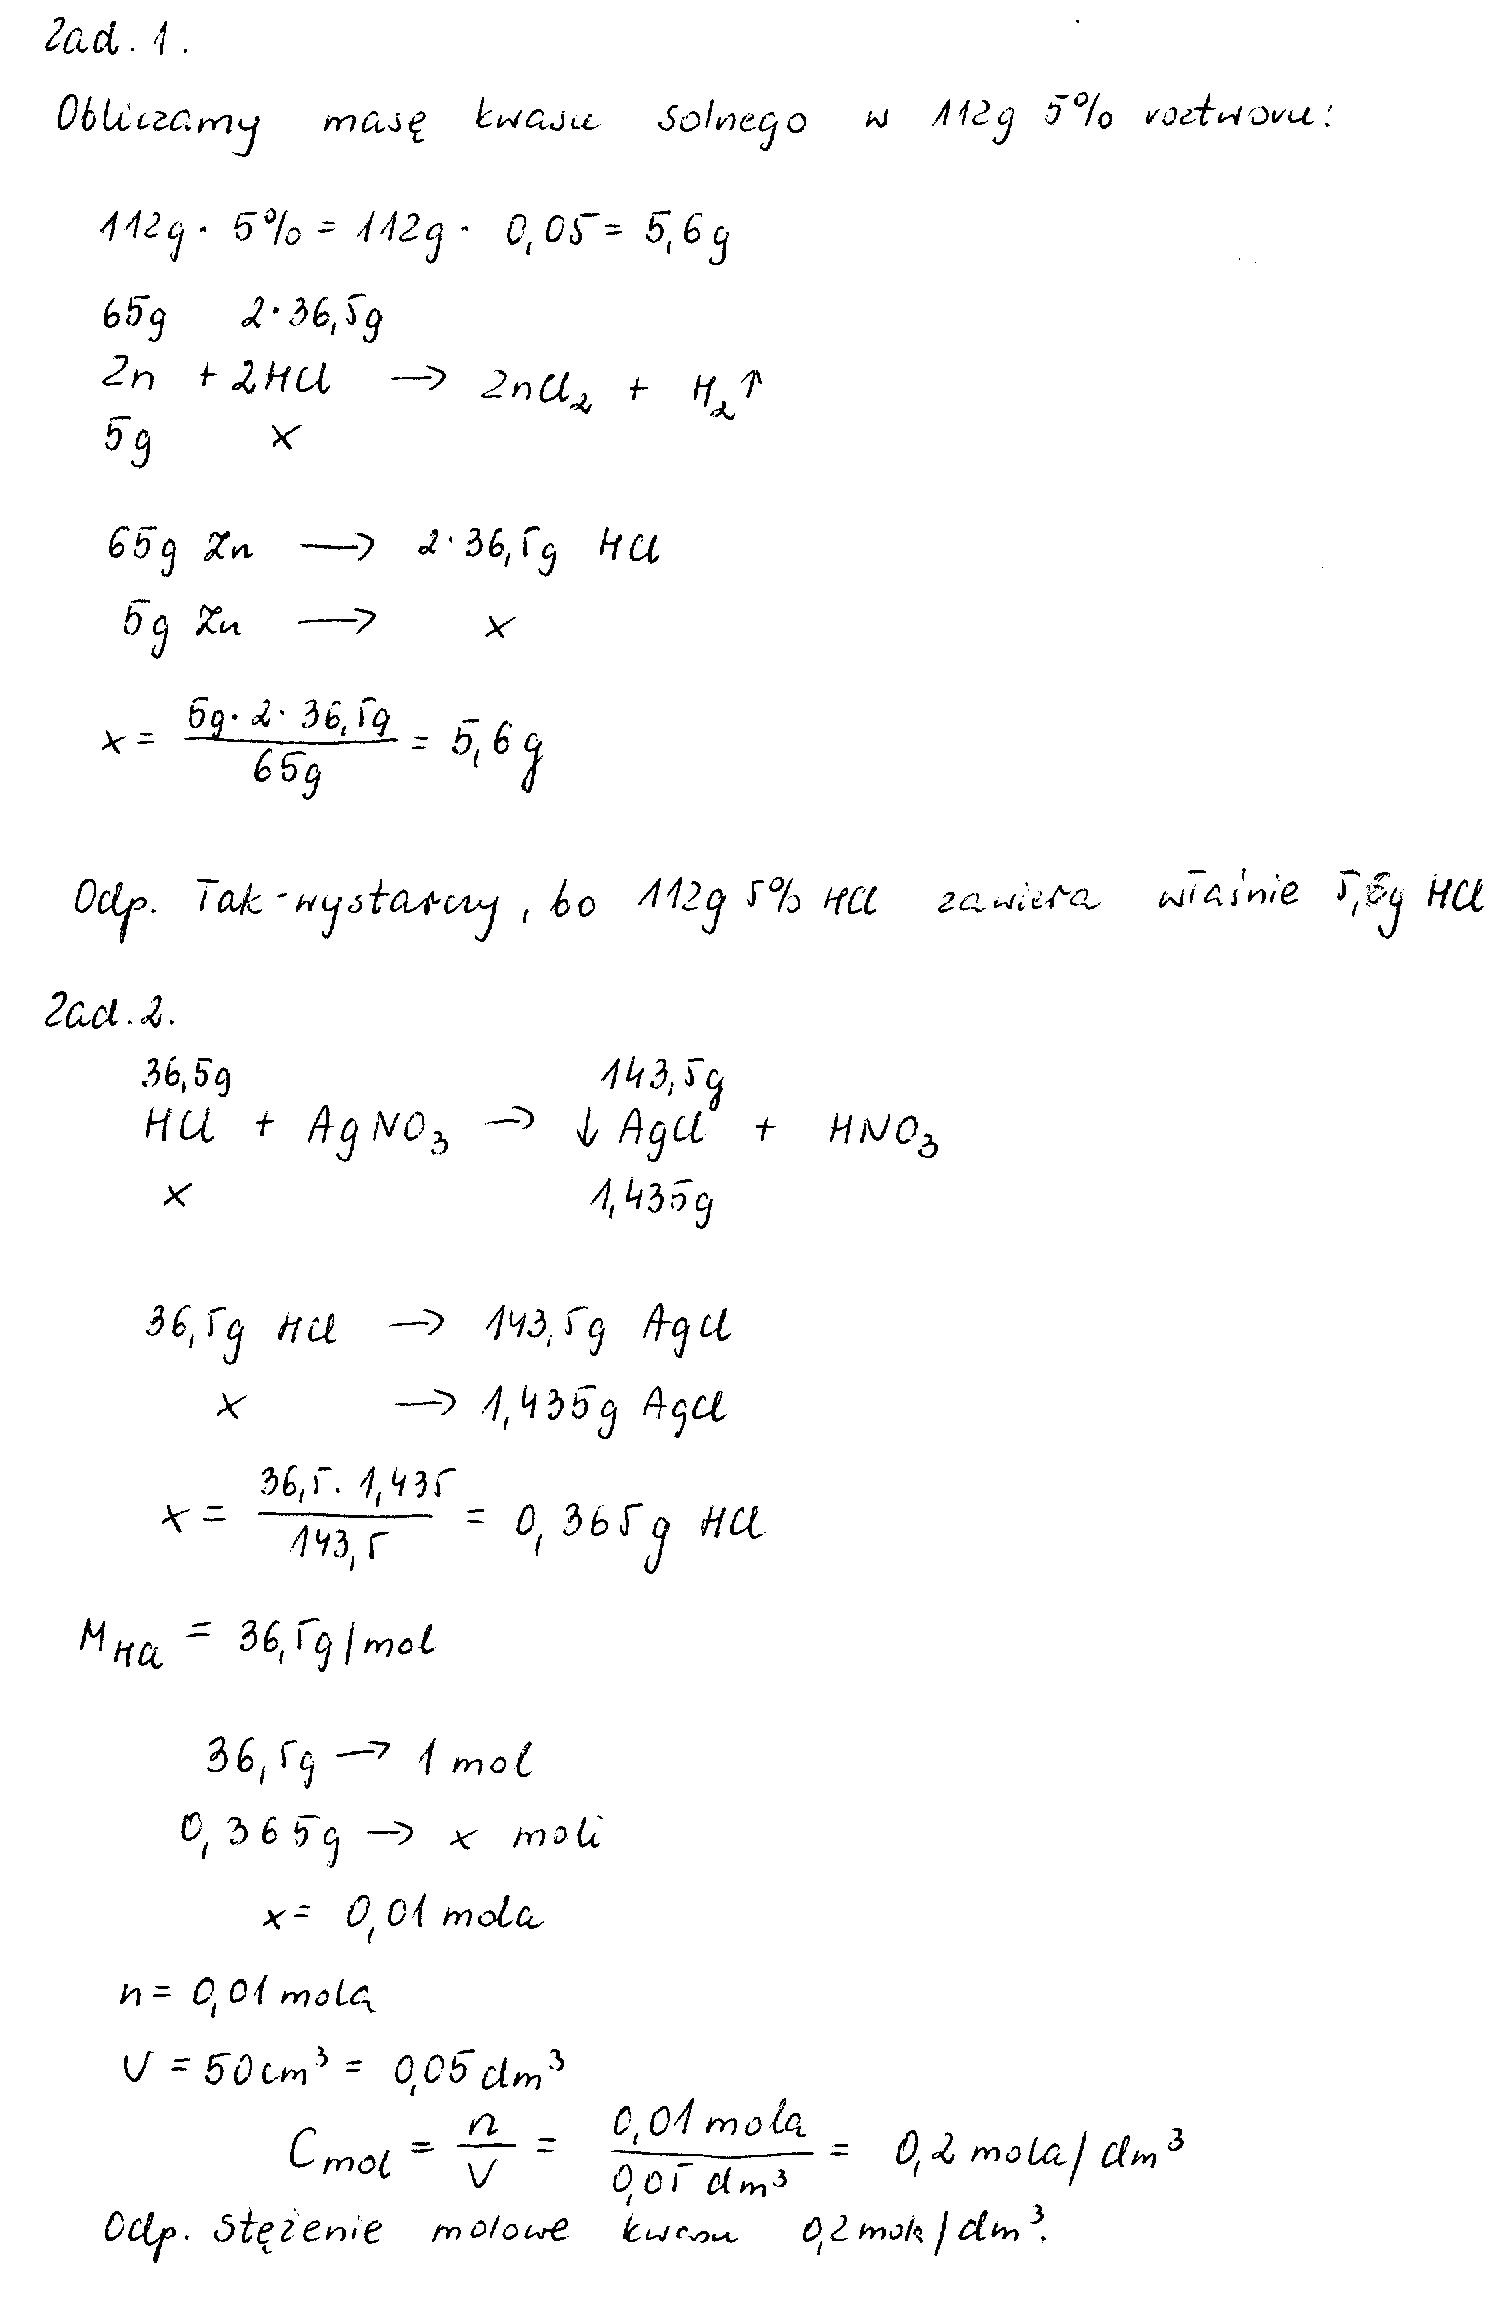 Zad. 1.
Obliczamy masę kwasu solnego w 112g 5% roztworu:
112g · 5% = 112g · 0,05 = 5,6g
65g 2·36,5g
Zn + 2HCl → ZnCl₂ + H₂↑
5g x
65g Zn → 2·36,5g HCl
5g Zn → x
x = 5g·2·36,5g / 65g = 5,6g
Odp. Tak-wystarczy, bo 112g 5% HCl zawiera właśnie 5,6g HCl
Zad. 2.
36,5g 143,5g
HCl + AgNO₃ → ↓AgCl + HNO₃
x 1,435g
36,5g HCl → 143,5g AgCl
x → 1,435g AgCl
x = 36,5 · 1,435 / 143,5 = 0,365g HCl
M HCl = 36,5g/mol
36,5g → 1 mol
0,365g → x moli
x = 0,01 mola
n = 0,01 mola
V = 50cm³ = 0,05 dm³
Cmol = n / V = 0,01 mola / 0,05 dm³ = 0,2 mola/dm³
Odp. Stężenie molowe kwasu 0,2 mola/dm³.